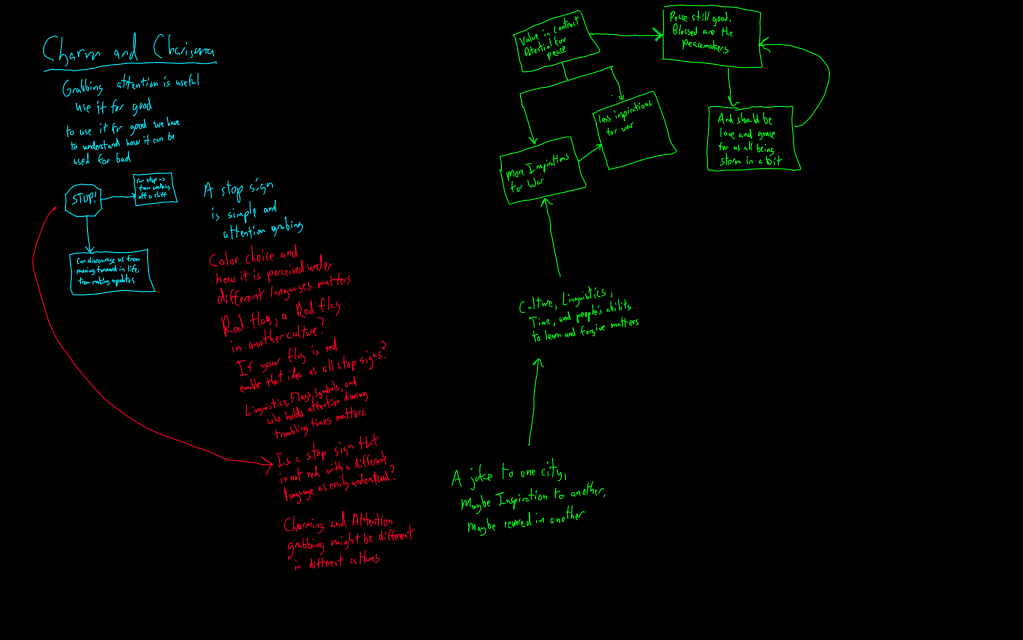 Charm and Charisma
Grabbing attention is useful
use it for good
to use it for good we have
to understand how it can be
used for bad
STOP!
Can stop us
from walking
off a cliff
Can discourage us from
moving forward in life,
from making updates
A stop sign
is simple and
attention grabing
Color choice and
how it is perceived under
different languages matters
Red flag, a Red flag
in another culture?
If your flag is red
enable that idea as all stop signs?
Linguistics, Flags, Symbols, and
who holds attention during
troubling times matters
Is a stop sign that
is not red with a different
language as easily understood?
Charming and Attention
grabbing might be different
in different cultures
Value in Contrast
Potential for
peace
Peace still good.
Blessed are the
peacemakers
less inspirations
for war
More Inspirations
for War
And should be
love and grace
for us all being
storm in a bit
Culture, Linguistics,
Time, and people's ability
to learn and forgive matters
A joke to one city,
Maybe Inspiration to another,
Maybe revered in another